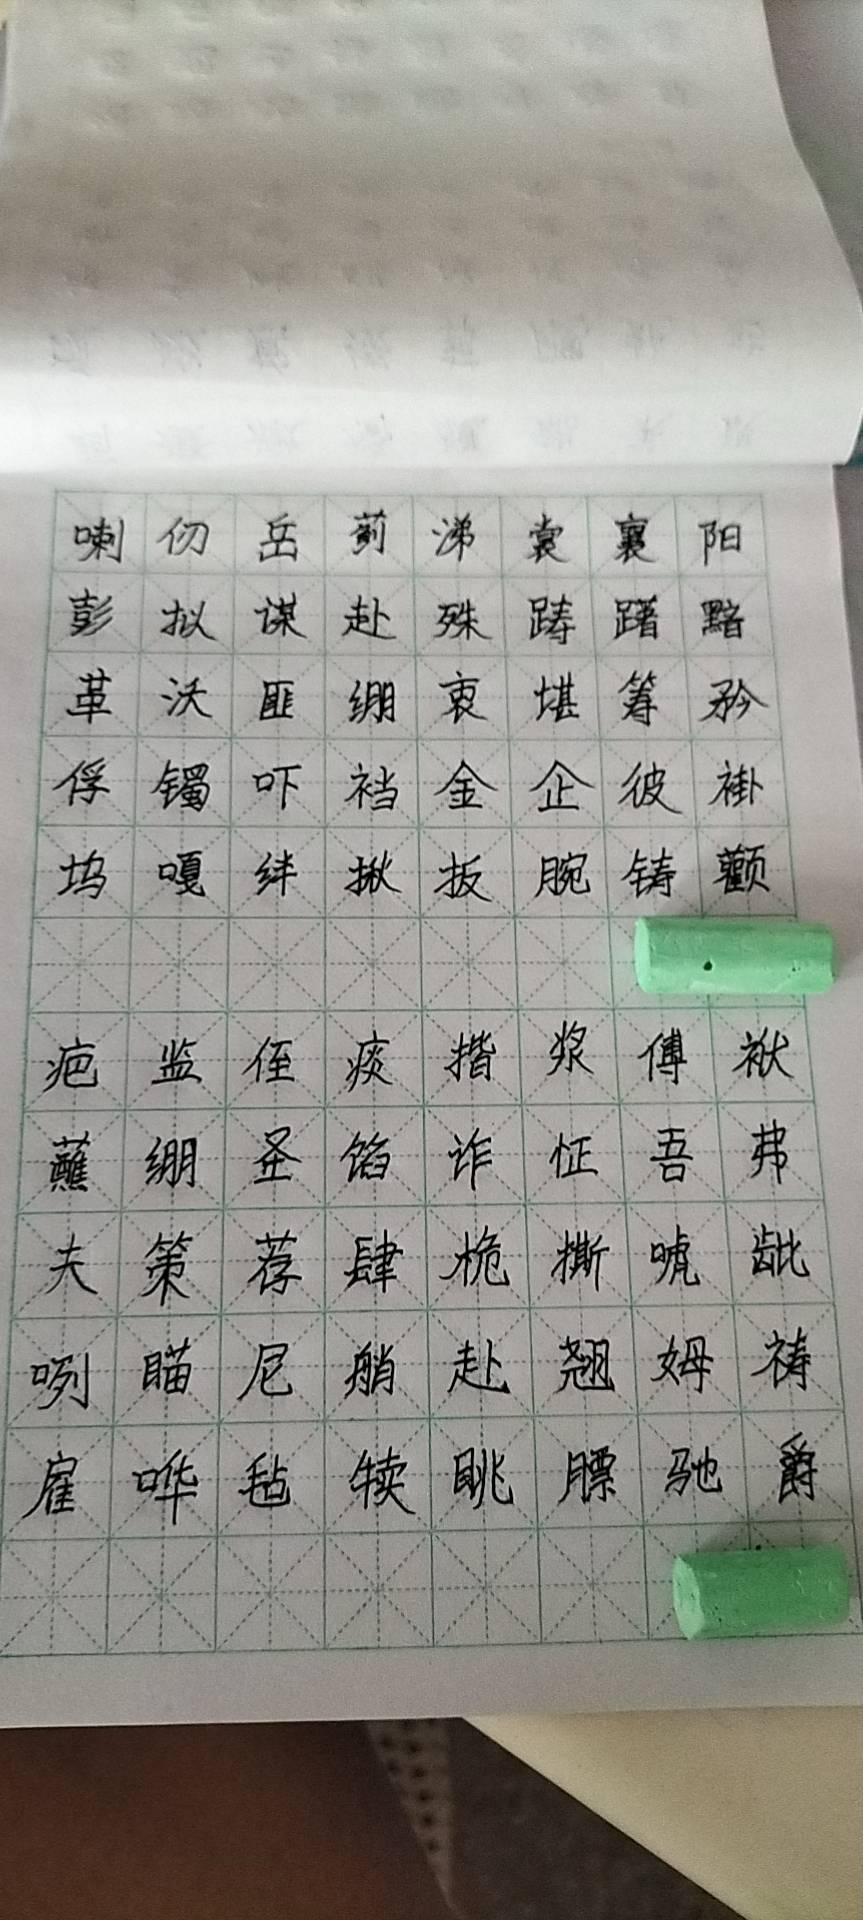 喇 仞 岳 蓟 涕 裳 襄 阳
彭 拟 谋 赴 殊 踌 躇 黯
革 沃 匪 绷 衷 堪 筹 矜
俘 镯 吓 裆 金 企 彼 褂
坞 嘎 绊 揪 扳 腕 铸 颧
疤 监 侄 痰 揩 浆 傅 袱
蘸 绷 圣 馅 诈 怔 吾 弗
夫 策 荐 肆 桅 撕 唬 龇
咧 瞄 尼 艄 赴 翘 姆 祷
雇 哗 毡 犊 眺 膘 驰 爵